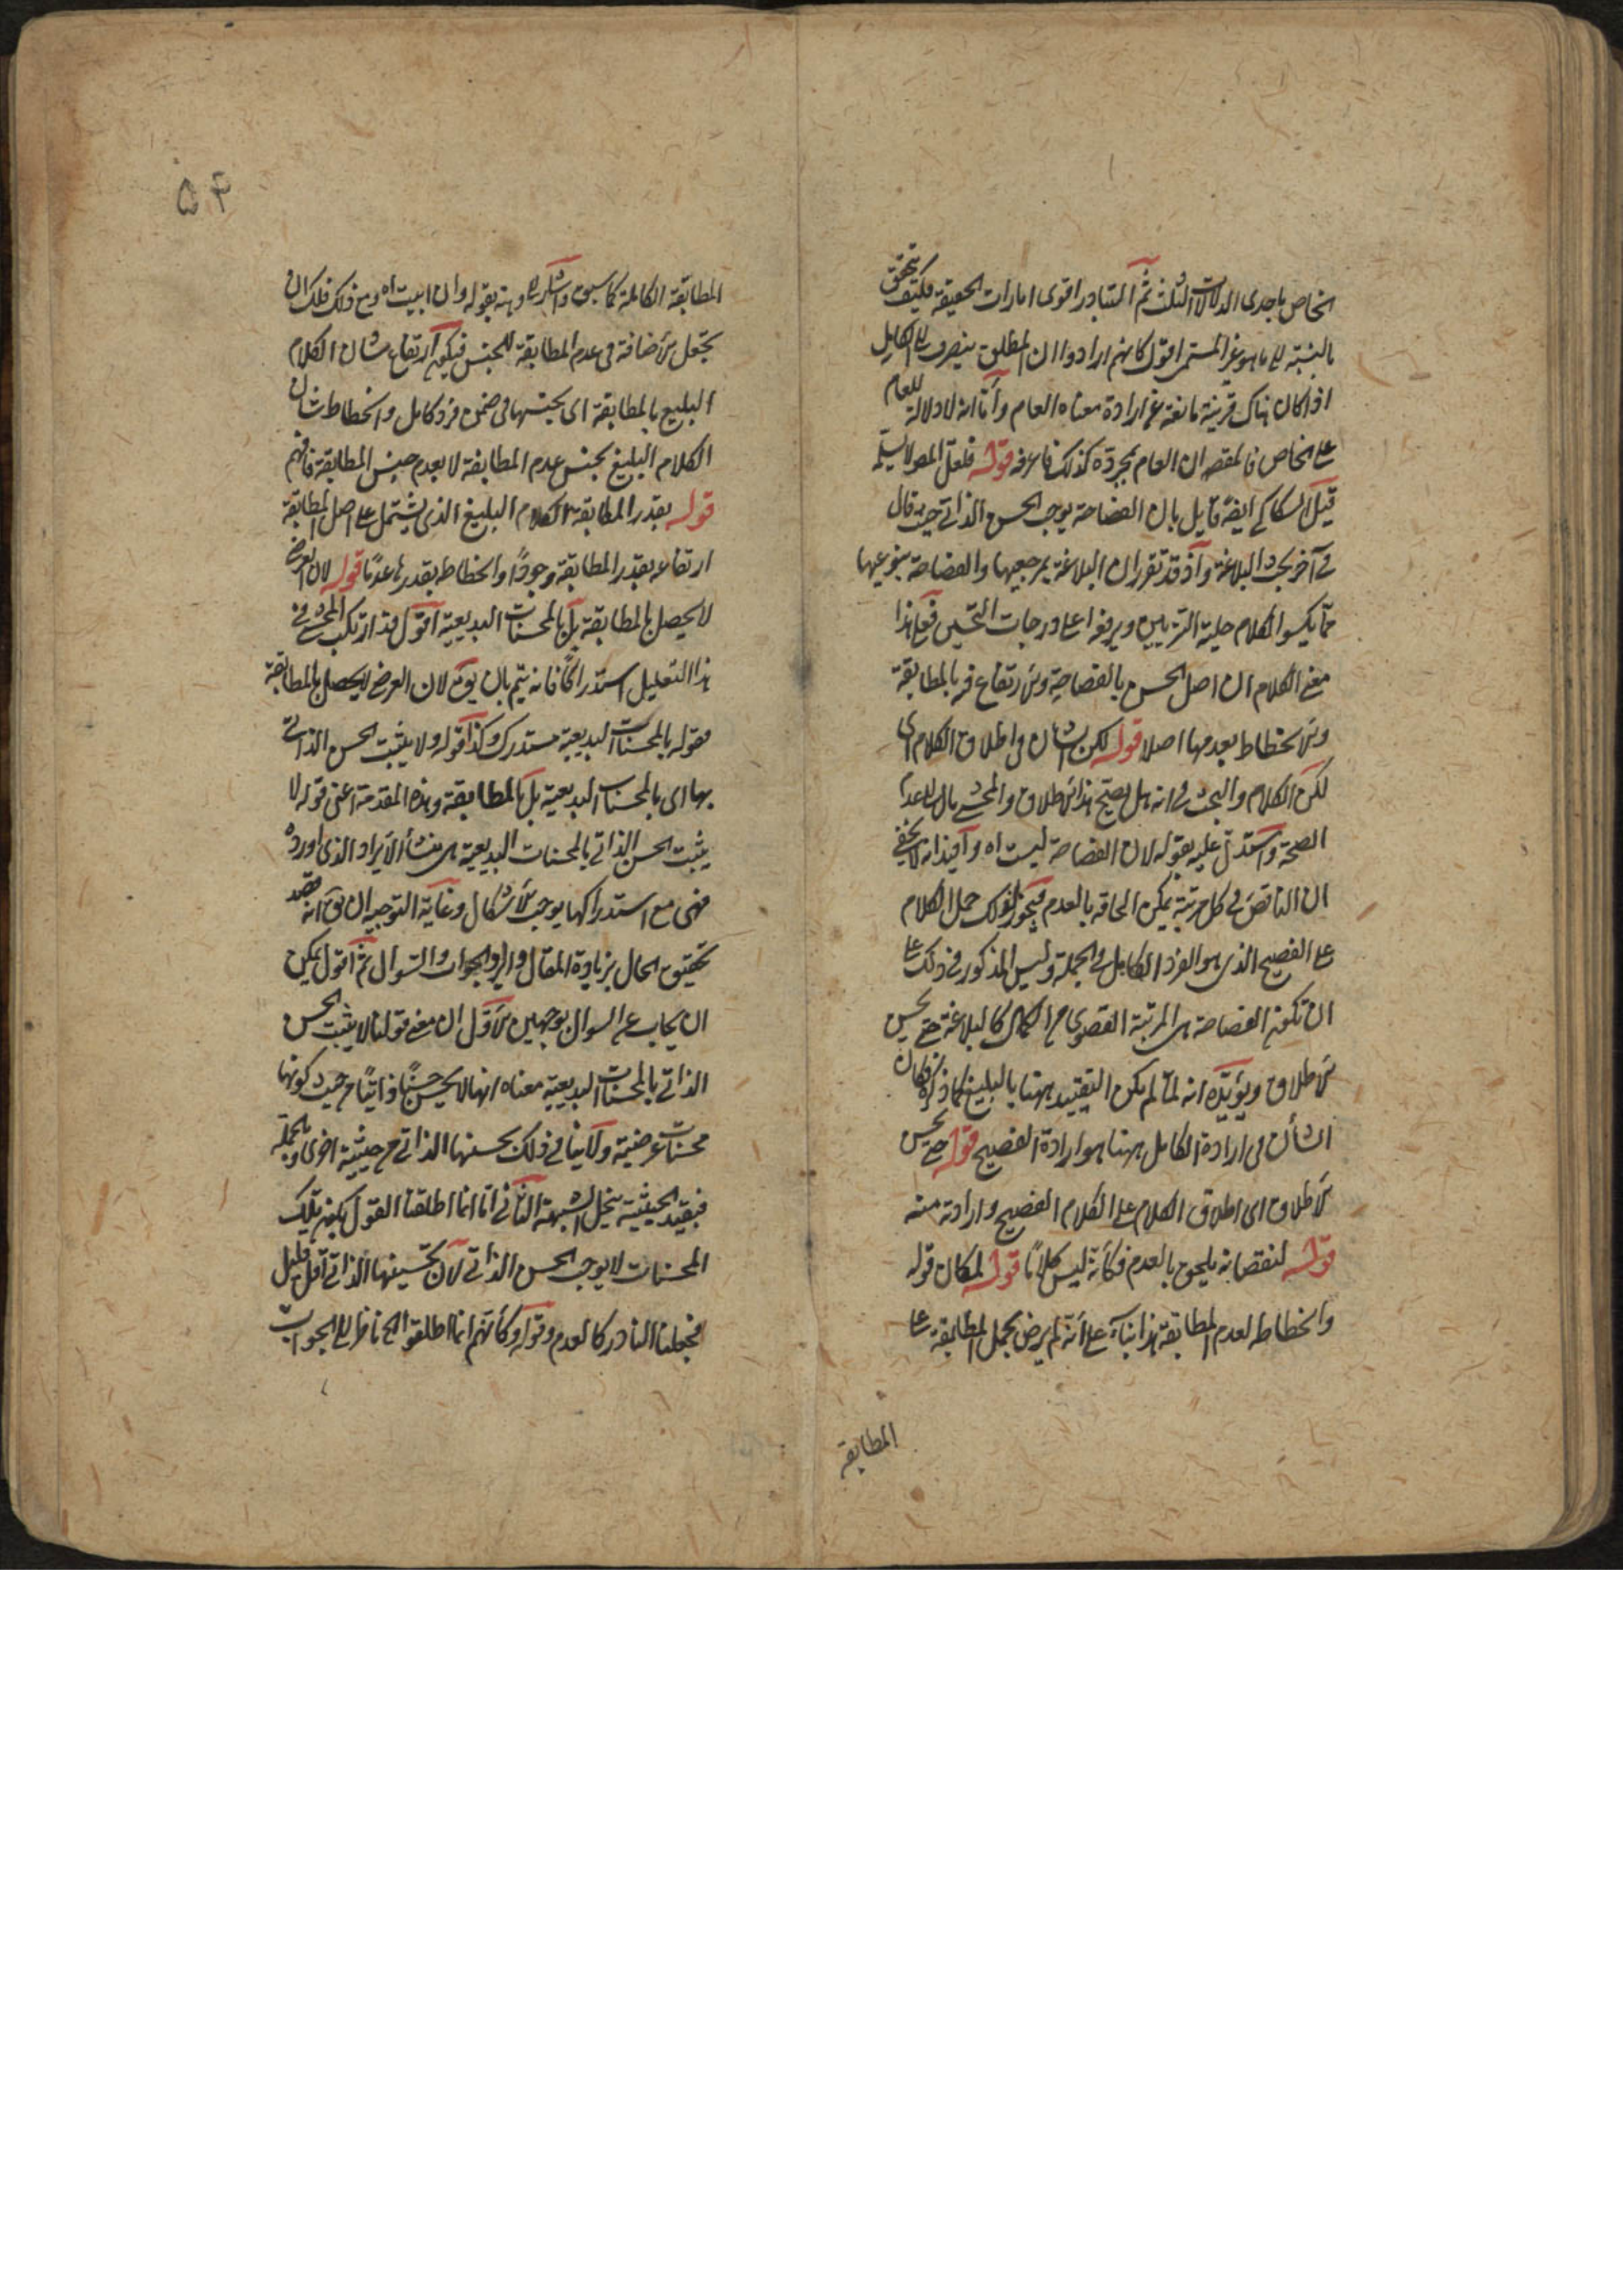 الخاص باحدى الدلالات الثلث ثم التبادر اقوى امارات الحقيقة فكيف يتحقق
بالنسبة الى ما هو غير المستمر اقول كانهم ارادوا ان المطلق ينصرف الى الكامل
اذا كان هناك قرينة مانعة عن ارادة معناه العام واما انه لا دلالة للعام
على الخاص فالمقصود ان العام بمجرده كذلك فاعرفه قوله فلعل المص لا يسلم
قيل السكاكي ايضا قايل بان الفصاحة يوجب الحسن الذاتي حيث قال
في آخر بحث البلاغة واذ قد تقرر ان البلاغة بمرجعيها والفصاحة بنوعيها
مما يكسو الكلام حلية التزيين ويرقيه اعلى درجات التحسين فعلى هذا
معنى الكلام ان اصل الحسن بالفصاحة والارتفاع فيه بالمطابقة
والانحطاط بعدمها اصلا قوله لكن الشان في اطلاق الكلام اى
لكن الكلام والبحث في انه هل يصح هذا الاطلاق والمحشي مال الى عدم
الصحة واستدل عليه بقوله لان الفصاحة ليست اه وافيد انه لا يخفى
ان الناقص في كل مرتبة يمكن الحاقه بالعدم فيجوز لذلك حمل الكلام
على الفصيح الذي هو الفرد الكامل في الجملة وليس المذكور في ذلك على
ان تكون الفصاحة هى المرتبة القصوى من الكمال كالبلاغة حتى يحسن
الاطلاق ويؤيده انه لما لم يكن التقييد ههنا بالبليغ كما ذكره فكان
الشأن في ارادة الكامل ههنا هو ارادة الفصيح قوله حتى يحسن
الاطلاق اى اطلاق الكلام على الكلام الفصيح وارادته منه
قوله لنقصانه يلحق بالعدم فكأنه ليس كلاما قوله لمكان قوله
وانحطاطه لعدم المطابقة هذا بناء على انه لم يرض بحمل المطابقة على
المطابقة
۵۴
المطابقة الكاملة كما سبق واشار اليه بقوله وان ابيت اه ومع ذلك فلك ان
تجعل الاضافة في عدم المطابقة للجنس فيكون ارتفاع شان الكلام
البليغ بالمطابقة اى بجنسها في ضمن فرد كامل وانحطاط شان
الكلام البليغ بجنس عدم المطابقة لا بعدم جنس المطابقة فافهم
قوله بقدر المطابقة الكلام البليغ الذي يشتمل على اصل المطابقة
ارتفاعه بقدر المطابقة وجودا وانحطاطه بقدرها عدما قوله لان العرضي
لا يحصل بالمطابقة بل بالمحسنات البديعية اقول قد ارتكب المحشي في
هذا التعليل استدراكا فانه يتم بان يق لان العرضي لا يحصل بالمطابقة
فقوله بالمحسنات البديعية مستدرك وكذا قوله ولا يثبت الحسن الذاتي
بها اى بالمحسنات البديعية بل بالمطابقة وهذه المقدمة اعنى قوله لا
يثبت الحسن الذاتي بالمحسنات البديعية هى منشأ الايراد الذي اورده
فهى مع استدراكها يوجب الاشكال وغاية التوجيه ان يق انه قصد
تحقيق الحال بزيادة المقال وايراد الجواب والسوال ثم اقول يمكن
ان يجاب عن السوال بوجهين الاول ان معنى قولنا لا يثبت الحسن
الذاتي بالمحسنات البديعية معناه انها لا يحسن حسنا ذاتيا من حيث كونها
محسنات عرضية ولا ينافي ذلك تحسينها الذاتي من حيثية اخرى وبالجملة
فبقيد الحيثية ينحل الشبهة الثاني انا انما اطلقنا القول بكون تلك
المحسنات لا يوجب الحسن الذاتي لان تحسينها الذاتي اقل قليل
فجعلنا النادر كالعدم وقوله وكأنهم انما اطلقوا الخ ناظر الى الجواب